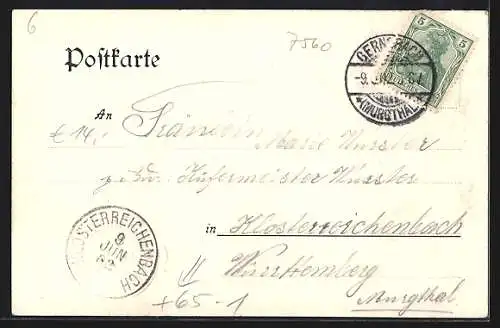 6
7560
Postkarte
GERNSBACH
-9. JUN. 
* (MURGTHAL)
5 5
An
€ 14,- Fräulein Marie Wurster
Küfermeister Wurster
in Klosterreichenbach
KLOSTERREICHENBACH
9
JUN
02
Württemberg
Murgthal
+65-1